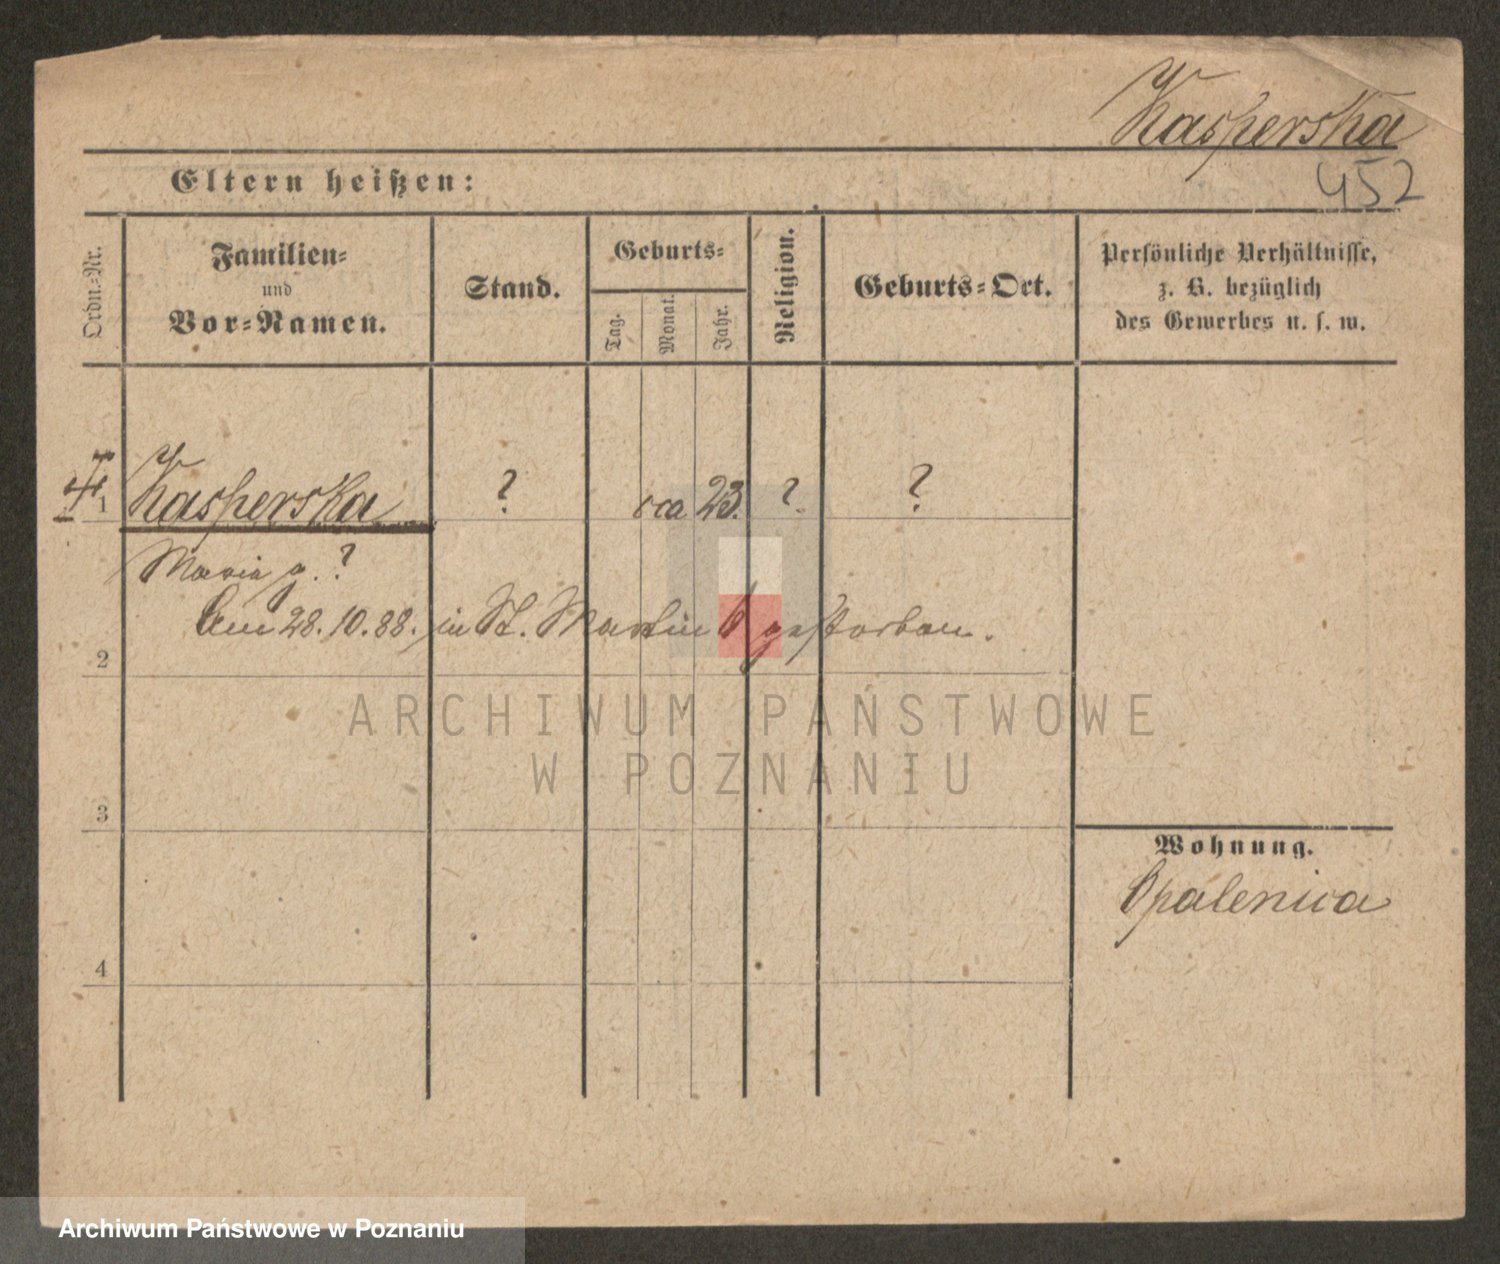 Kasperska
452
Eltern heißen:
Ordn.-Nr.
Familien-
und
Vor-Namen.
Stand.
Geburts-
Tag.
Monat.
Jahr.
Religion.
Geburts-Ort.
Persönliche Verhältnisse,
z. B. bezüglich
des Gewerbes u. s. w.
1 Kasperska ? ca 23. ? ?
Maria g. ?
Am 28.10.88. in St. Martin gestorben.
2
ARCHIWUM PAŃSTWOWE
W POZNANIU
3
Wohnung.
Opalenica
4
Archiwum Państwowe w Poznaniu